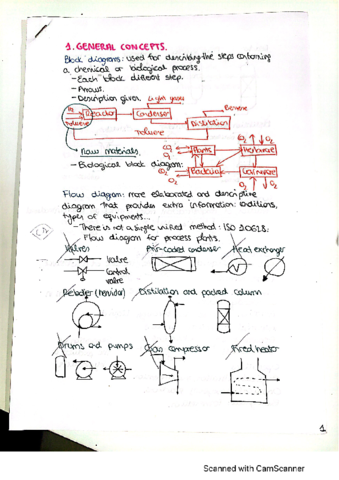 1. GENERAL CONCEPTS.
Block diagrams: used for describing the steps containing
a chemical or biological process.
- Each block different step.
- Arrows.
- Description given
Light gases
H2
Reactor
Condenser
Benzene
Toluene
Distillation
Toluene
raw materials
- Biological block diagram:
CO2
O2
Plants
CO2
O2
Bacteria
CO2
O2
CO2
O2
Flow diagram: more elaborated and descriptive
diagram that provides extra information: conditions,
types of equipments...
- There is not a single unified method: ISO 10628:
Flow diagram for process plants.
Valves
Air-cooled condenser
Heat exchanger
Valve
Control
valve
Reboiler
Distillation and packed column
Drums and pumps
Gas compressor
Fired heater
1
Scanned with CamScanner